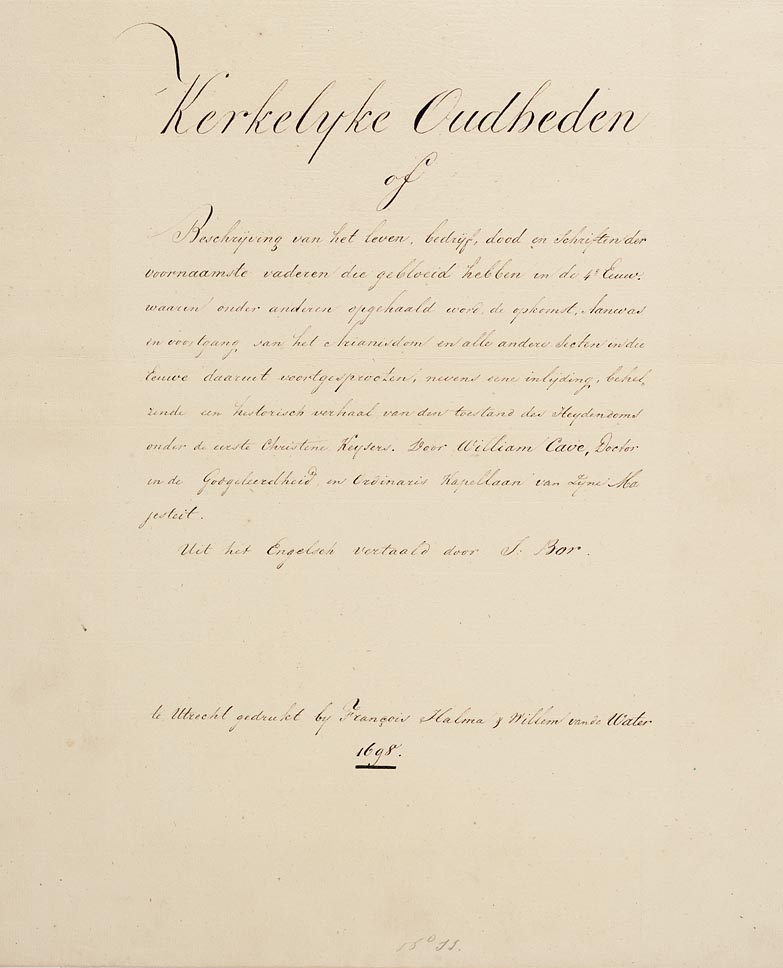 Kerkelyke Oudheden
of
Beschrijving van het leven, bedrijf, dood en Schriften der
voornaamste vaderen die gebloeid hebben in de 4e Eeuw.
waarin onder anderen opgehaald word, de opkomst, Aanwas
en voortgang van het Arianisdom en alle andere Secten in die
Eeuwe daaruit voortgesproten, nevens eene inlijding, behel„
zende een historisch verhaal van den toestand des Heydendoms
onder de eerste Christene Keysers. Door William Cave, Doctor
in de Godgeleerdheid, en Ordinaris Kapellaan van Zyne Ma
jesteit.
Uit het Engelsch vertaald door S. Bor.
te Utrecht gedrukt by François Halma & Willem vande Water
1698.